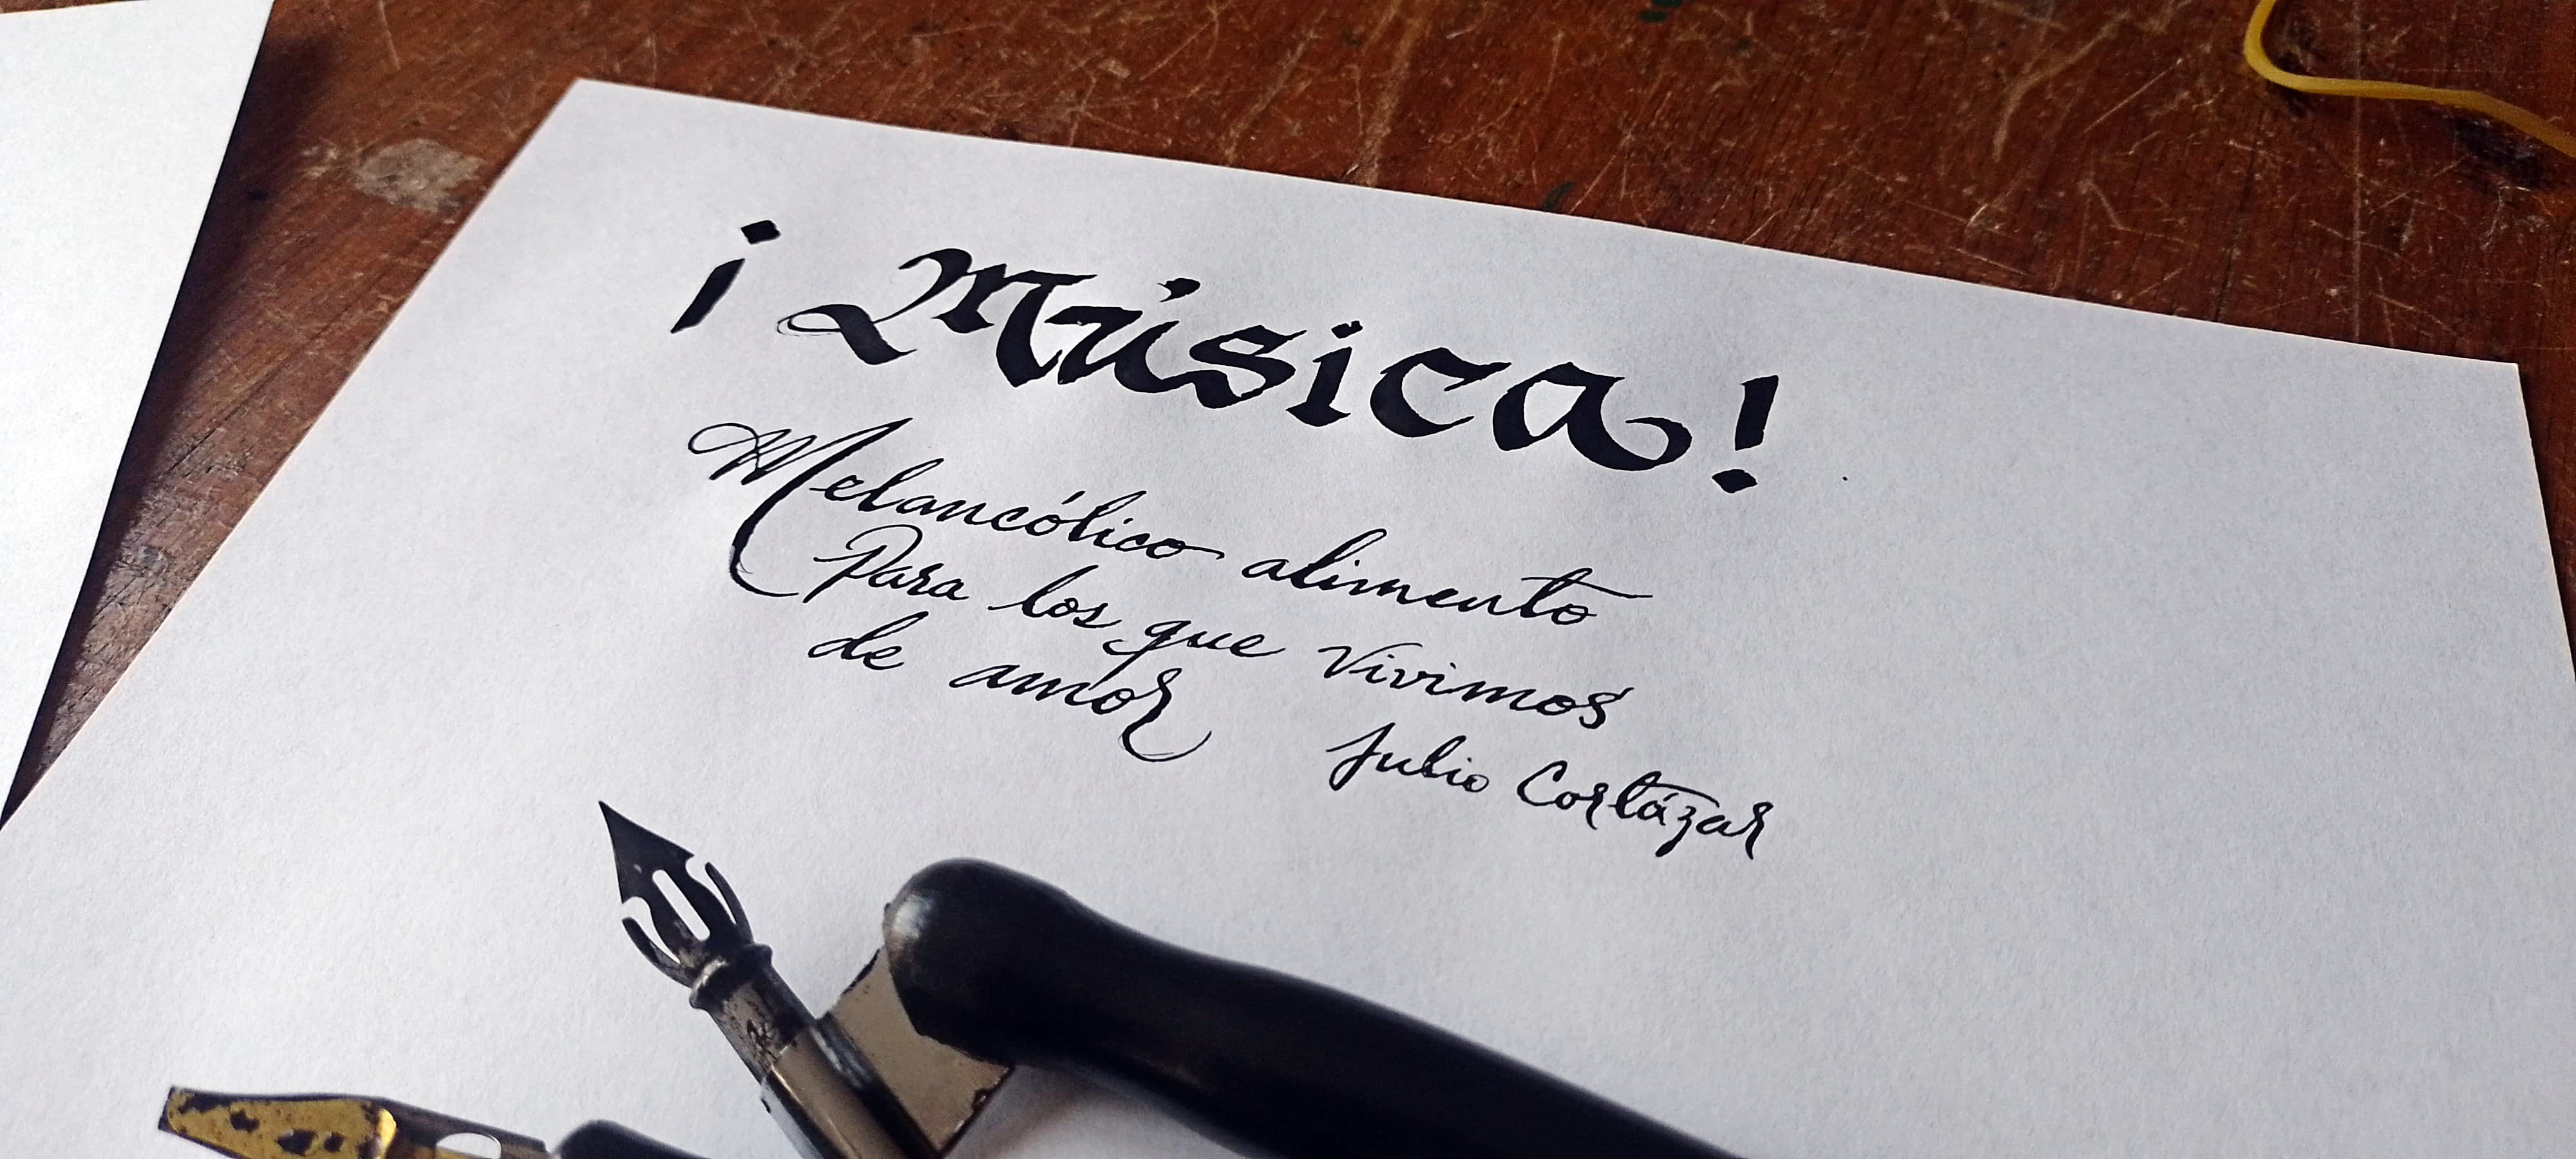 ¡Música!
Melancólico alimento
Para los que Vivimos
de amor
Julio Cortázar